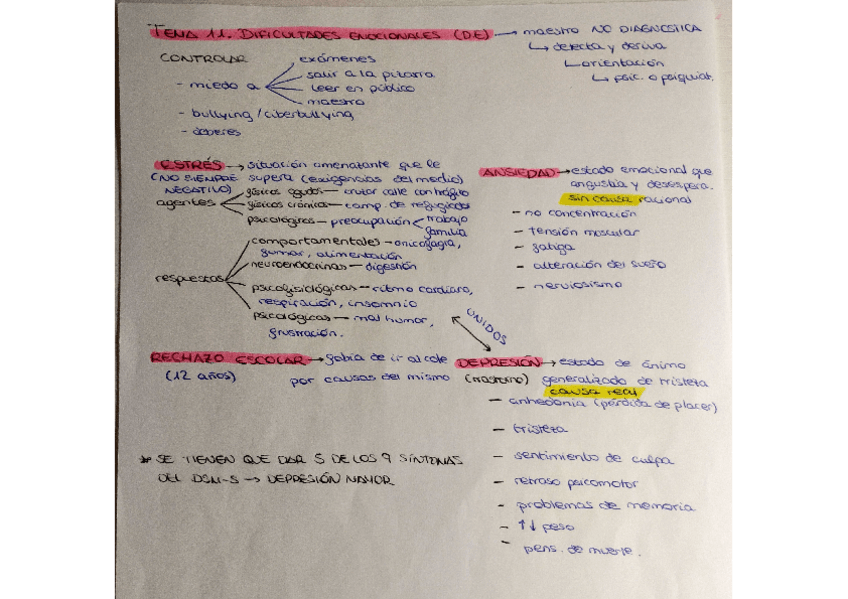 TEMA 11. DIFICULTADES EMOCIONALES (DE) → maestro NO DIAGNOSTICA
↳ detecta y deriva
↳ orientación
↳ psic. o psiquiat.
CONTROLAR
- miedo a
exámenes
salir a la pizarra
leer en público
maestro
- bullying / ciberbullying
- deberes
ESTRÉS → situación amenazante que le
(NO SIEMPRE supera (exigencias del medio)
NEGATIVO)
agentes
físicos agudos — cruzar calle con tráfico
físicos crónicos — camp. de refugiados
psicológicos — preocupación
trabajo
familia
respuestas
comportamentales — onicofagia,
fumar, alimentación
neuroendocrinas — digestión
psicofisiológicas — ritmo cardiaco,
respiración, insomnio
psicológicas — mal humor,
frustración.
ANSIEDAD → estado emocional que
angustia y desespera.
sin causa racional
- no concentración
- tensión muscular
- fatiga
- alteración del sueño
- nerviosismo
UNIDOS
RECHAZO ESCOLAR → fobia de ir al cole
(12 años) por causas del mismo
DEPRESIÓN → estado de ánimo
(trastorno) generalizado de tristeza
causa real
- anhedonia (pérdida de placer)
- tristeza
- sentimiento de culpa
- retraso psicomotor
- problemas de memoria
- ↑↓ peso
- pens. de muerte.
* SE TIENEN QUE DAR 5 DE LOS 9 SÍNTOMAS
DEL DSM-5 → DEPRESIÓN MAYOR